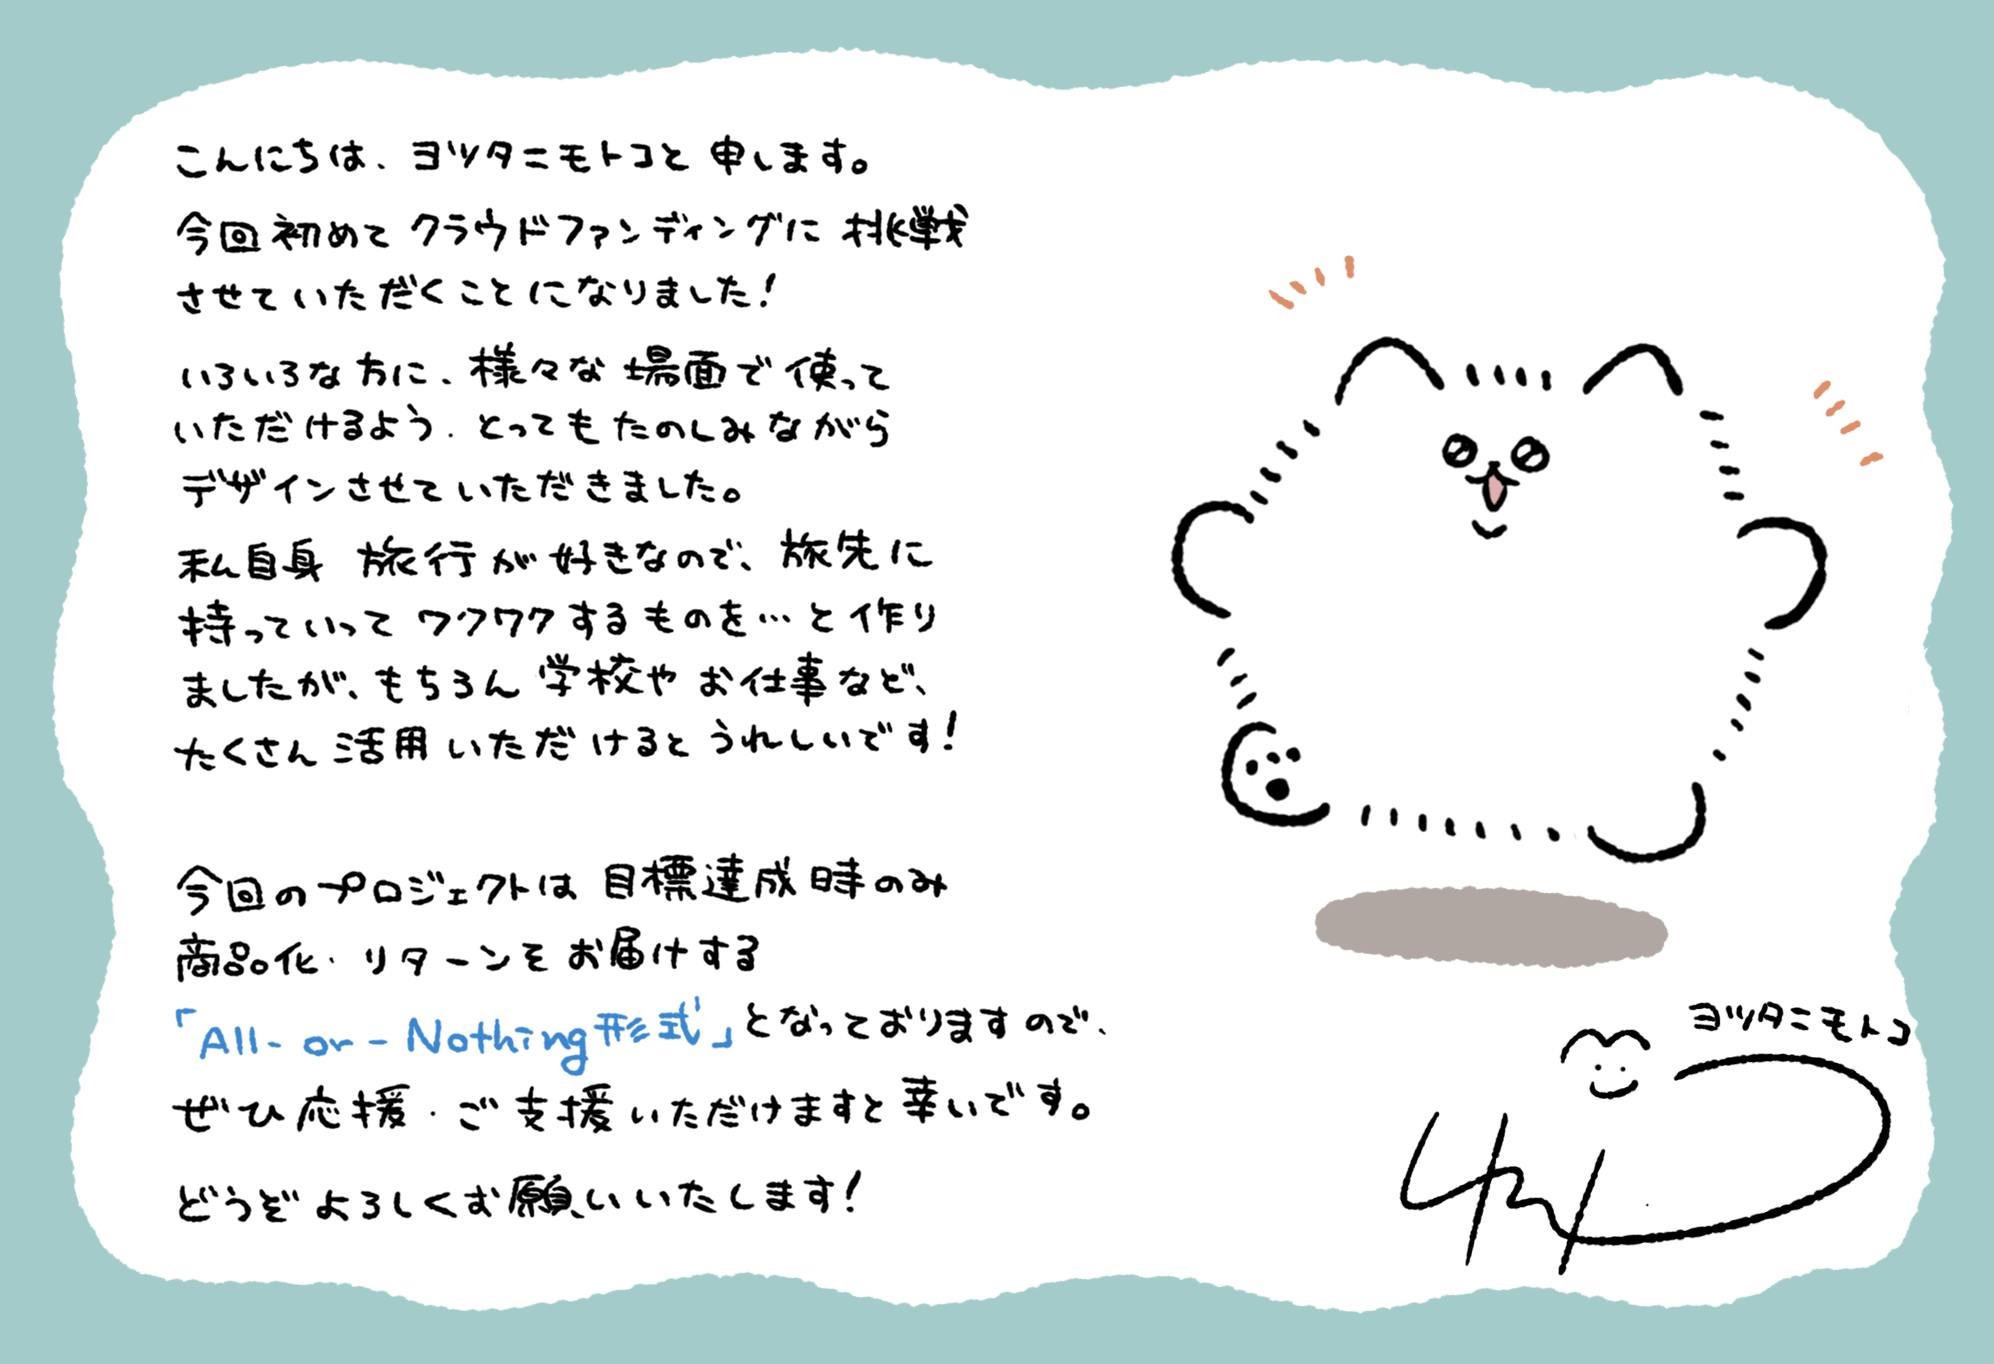 こんにちは、ヨツタニモトコと申します。
今回初めてクラウドファンディングに挑戦
させていただくことになりました!
いろいろな方に、様々な場面で使って
いただけるよう、とってもたのしみながら
デザインさせていただきました。
私自身 旅行が好きなので、旅先に
持っていってワクワクするものを…と作り
ましたが、もちろん学校やお仕事など、
たくさん活用いただけるとうれしいです!
今回のプロジェクトは目標達成時のみ
商品化・リターンをお届けする
「All-or-Nothing形式」となっておりますので、
ぜひ応援・ご支援いただけますと幸いです。
どうぞよろしくお願いいたします!
ヨツタニモトコ